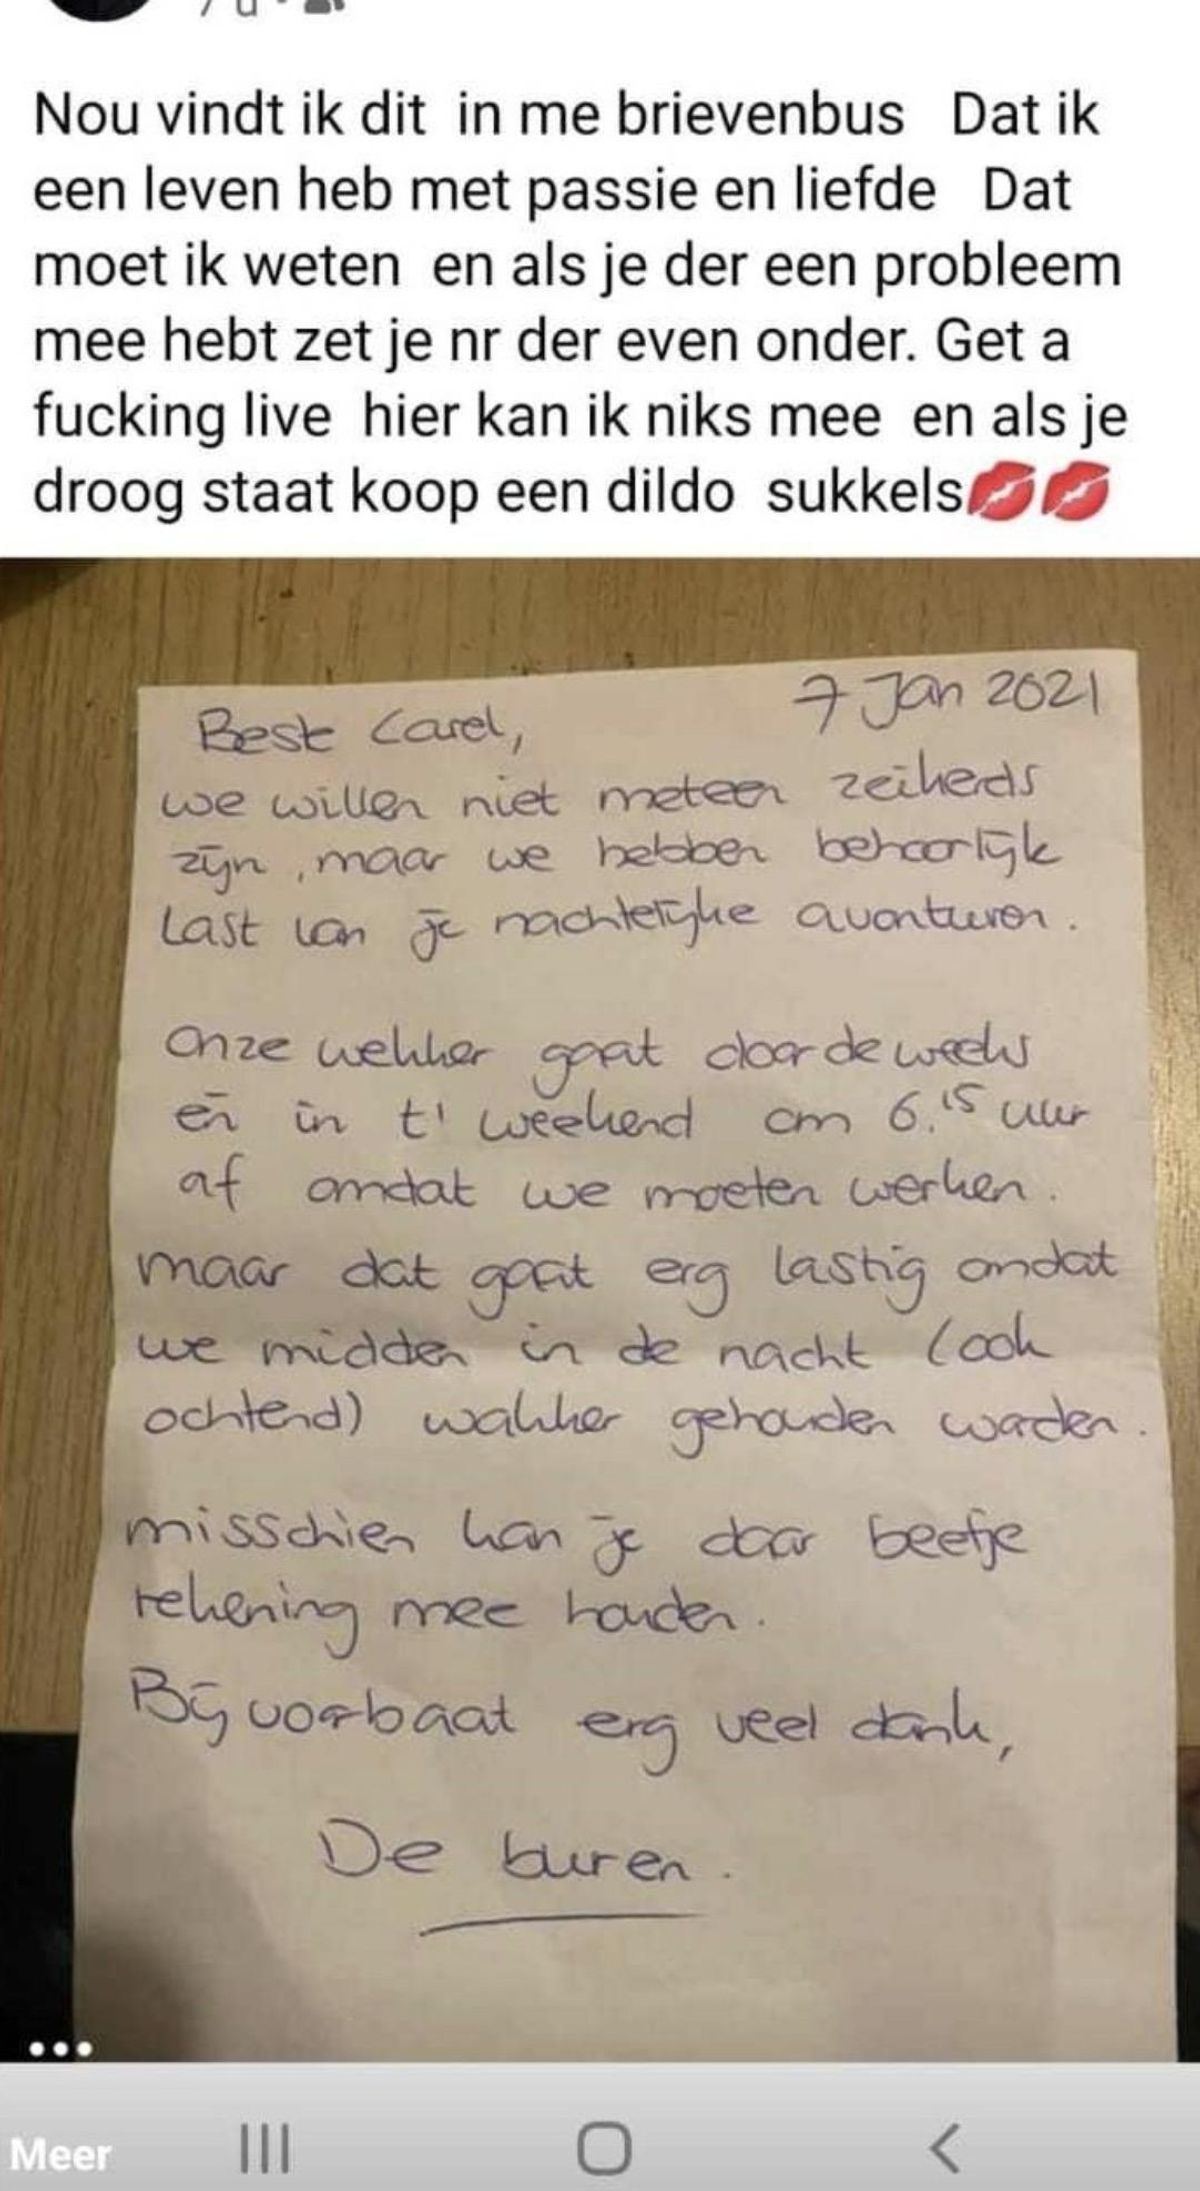 7 u
Nou vindt ik dit in me brievenbus Dat ik
een leven heb met passie en liefde Dat
moet ik weten en als je der een probleem
mee hebt zet je nr der even onder. Get a
fucking live hier kan ik niks mee en als je
droog staat koop een dildo sukkels💋💋
7 Jan 2021
Beste Carel,
we willen niet meteen zeikerds
zijn, maar we hebben behoorlijk
Last van je nachtelijke avonturen.
Onze wekker gaat door de weeks
en in t' weekend om 6.15 uur
af omdat we moeten werken.
maar dat gaat erg lastig omdat
we midden in de nacht (ook
ochtend) wakker gehouden worden.
misschien kan je daar beetje
rekening mee houden.
Bij voorbaat erg veel dank,
De buren.
Meer